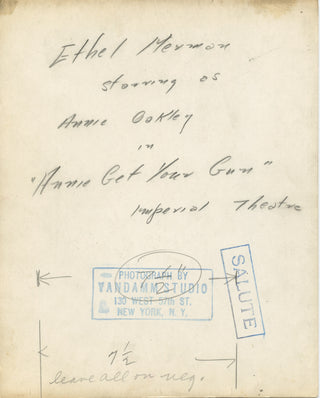 Ethel Merman
starring as
Annie Oakley
in
"Annie Get Your Gun"
Imperial Theatre
PHOTOGRAPH BY
VANDAMM STUDIO
130 WEST 57th ST.
NEW YORK, N. Y.
SALUTE
7 1/2
leave all on neg.